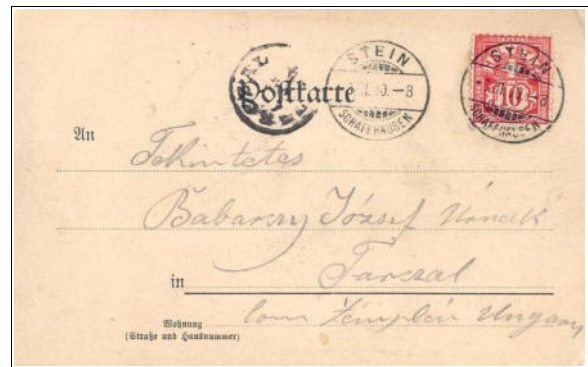 STEIN
STEIN
Postkarte
SCHAFFHAUSEN
10
SCHAFFHAUSEN
An
Tekintetes
Babarczy József Úrnak
in
Tarczal
Com Zémplén Ungarn
Wohnung
(Straße und Hausnummer)